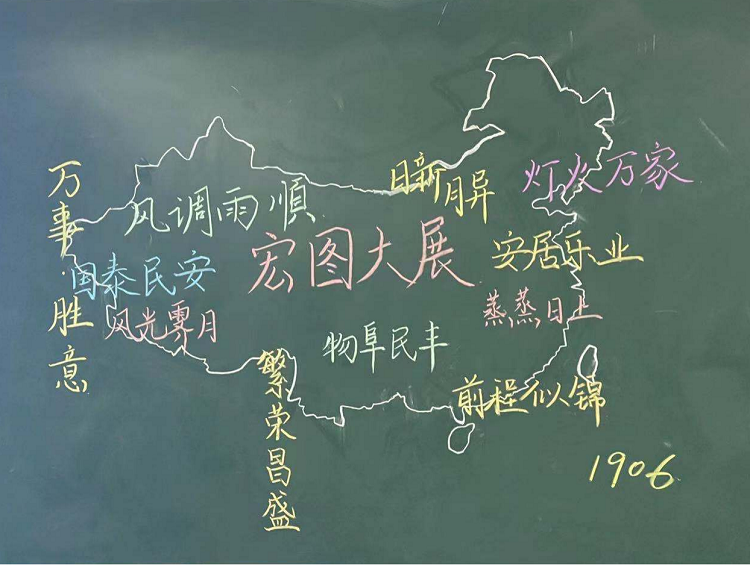 万事·胜意
风调雨順
日新月异
灯火万家
国泰民安
宏图大展
安居乐业
风光霁月
蒸蒸日上
物阜民丰
繁荣昌盛
前程似锦
1906